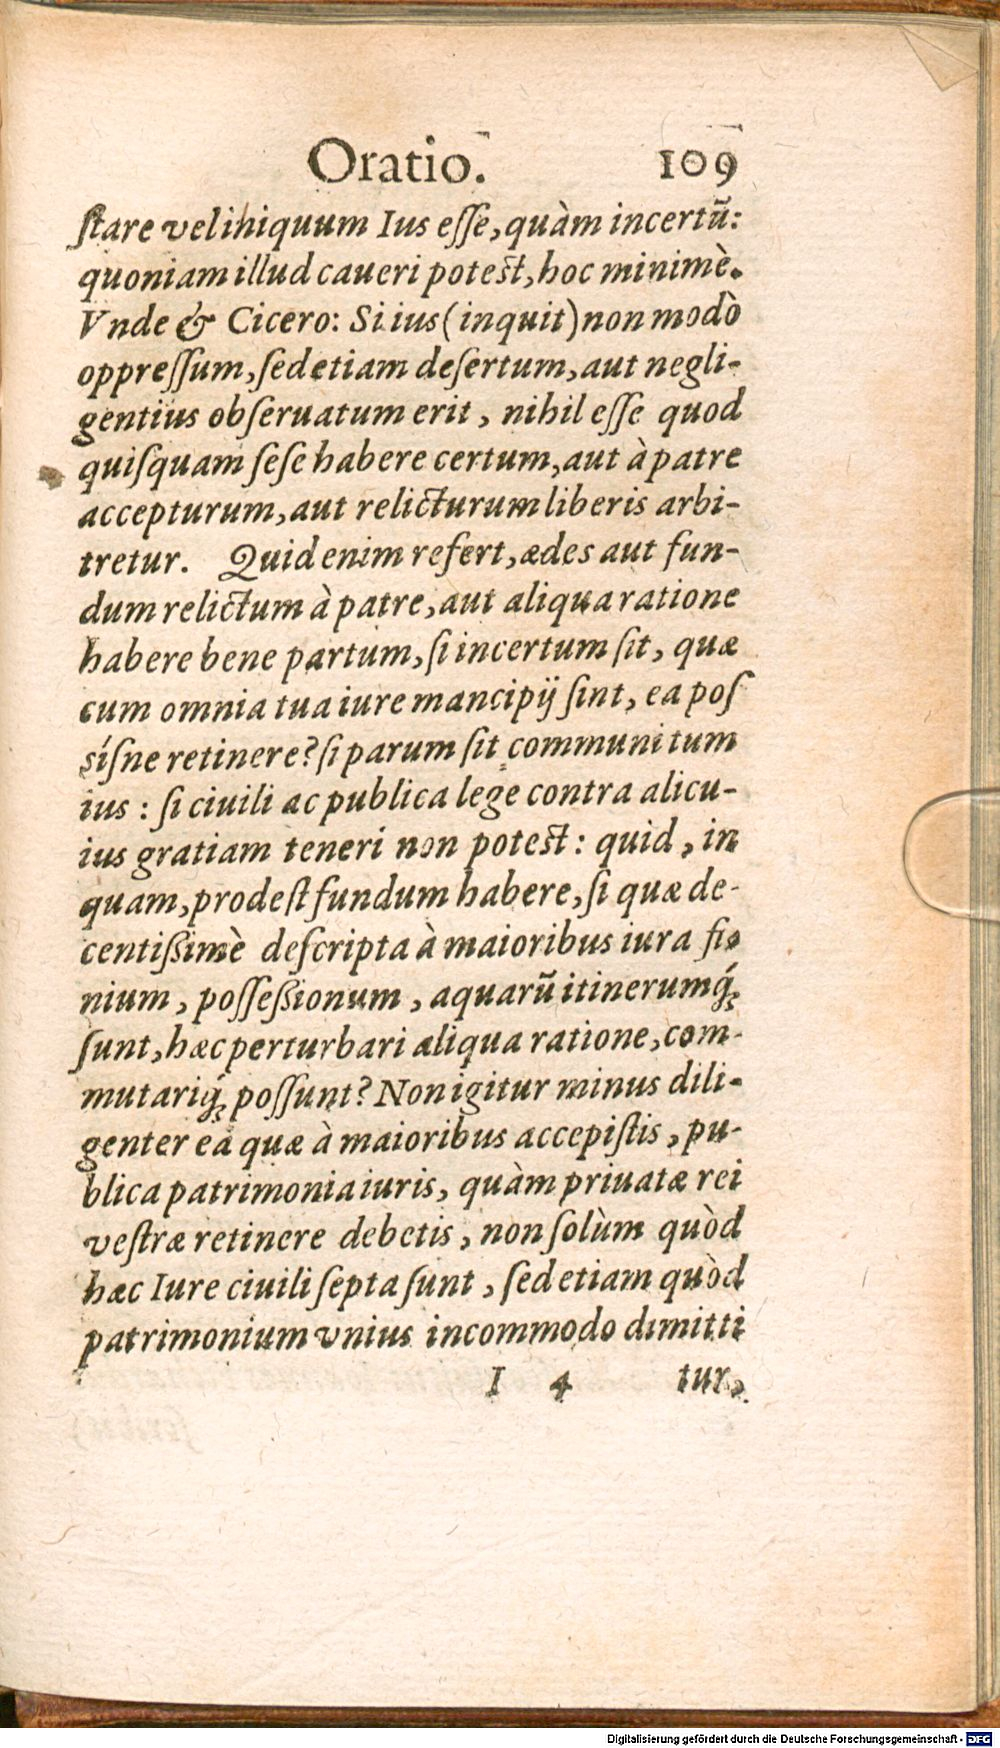 Oratio. 109
ſtare vel iniquum Ius eſſe, quàm incertũ:
quoniam illud caueri poteſt, hoc minimè.
Vnde & Cicero: Si ius (inquit) non modò
oppreſſum, ſed etiam deſertum, aut negli-
gentius obſeruatum erit, nihil eſſe quod
quiſquam ſeſe habere certum, aut à patre
accepturum, aut relicturum liberis arbi-
tretur. Quid enim refert, ædes aut fun-
dum relictum à patre, aut aliqua ratione
habere bene partum, ſi incertum ſit, quæ
cum omnia tua iure mancipij ſint, ea poſ
ſíſne retinere? ſi parum ſit communitum
ius: ſi ciuili ac publica lege contra alicu-
ius gratiam teneri non poteſt: quid, in
quam, prodeſt fundum habere, ſi quæ de-
centiſsimè deſcripta à maioribus iura fi-
nium, poſſeſsionum, aquarũ itinerumq́;
ſunt, hæc perturbari aliqua ratione, com-
mutariq́; poſſunt? Non igitur minus dili-
genter ea quæ à maioribus accepiſtis, pu-
blica patrimonia iuris, quàm priuatæ rei
veſtræ retinere debetis, non ſolùm quòd
hæc Iure ciuili ſepta ſunt, ſed etiam quòd
patrimonium vnius incommodo dimitti
I 4 tur,
Digitalisierung gefördert durch die Deutsche Forschungsgemeinschaft - DFG